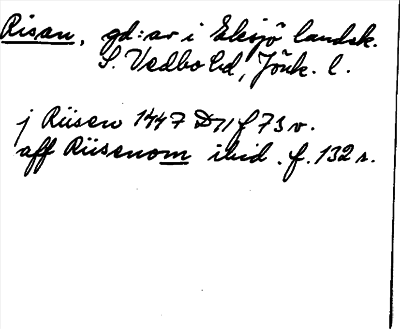 Risan, gd:ar i Eksjö landsk.
S. Vedbo hd, Jönk. l.
j Riisen 1447 D 11 f 73 v.
aff Riisenom ibid. f. 132 r.